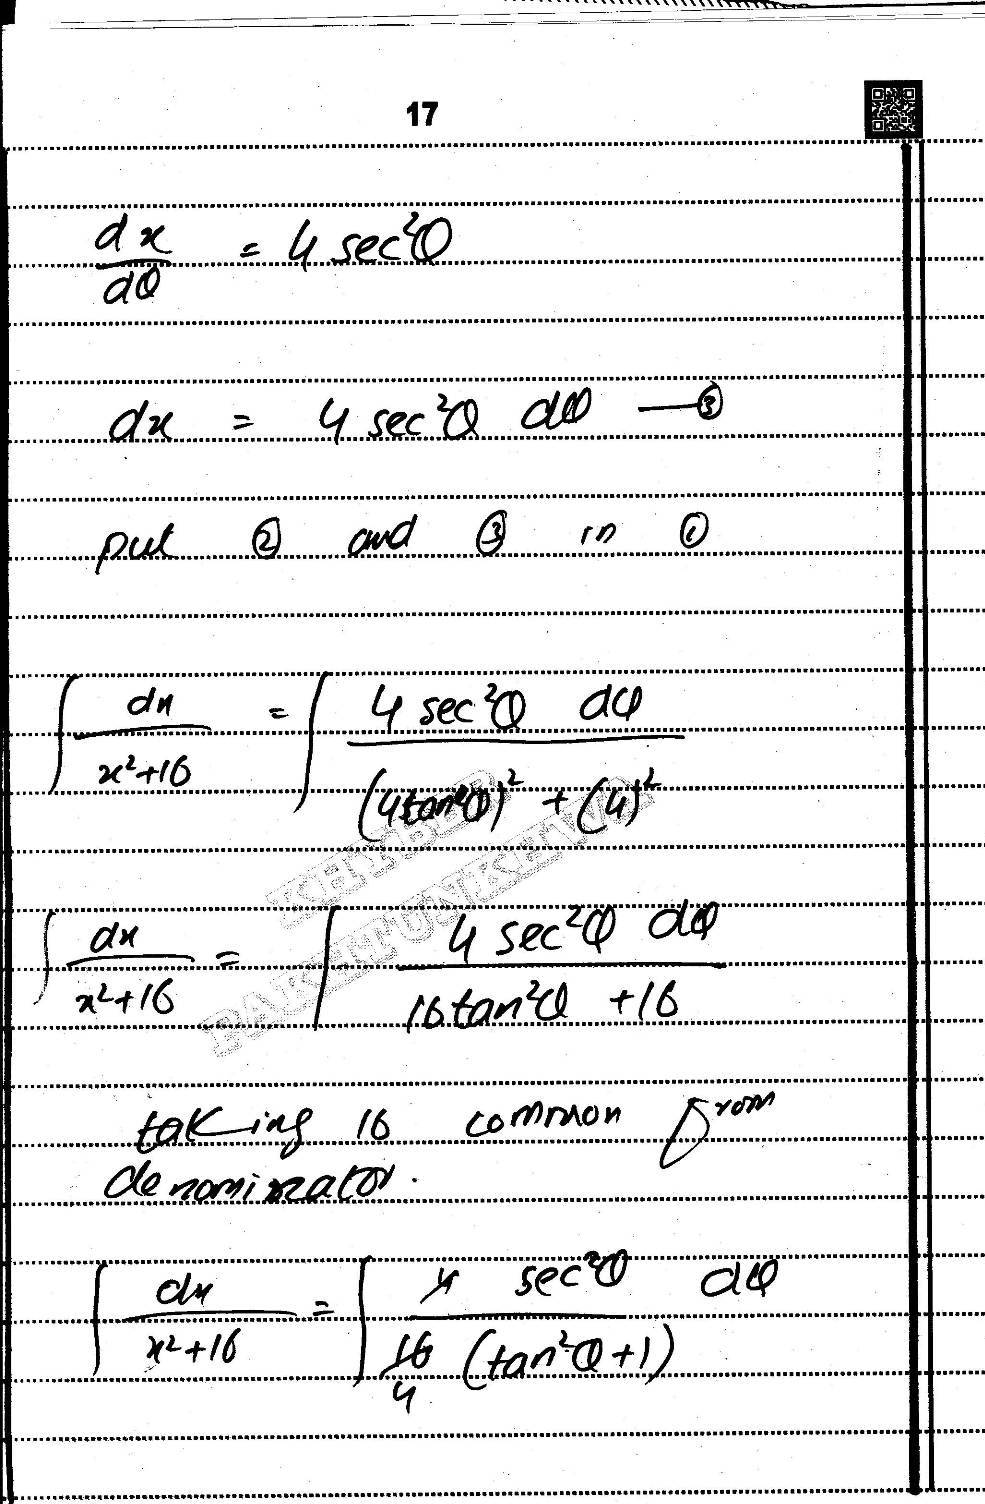 17
dx/dθ = 4 sec²θ
dx = 4 sec²θ dθ —③
put ② and ③ in ①
∫ dx/(x²+16) = ∫ 4 sec²θ dθ / ((4tanθ)² + (4)²)
∫ dx/(x²+16) = ∫ 4 sec²θ dθ / (16tan²θ +16)
taking 16 common from
denominator.
∫ dx/(x²+16) = ∫ 4 sec²θ dθ / (16 (tan²θ+1))
4
KHYBER
PAKHTUNKHWA